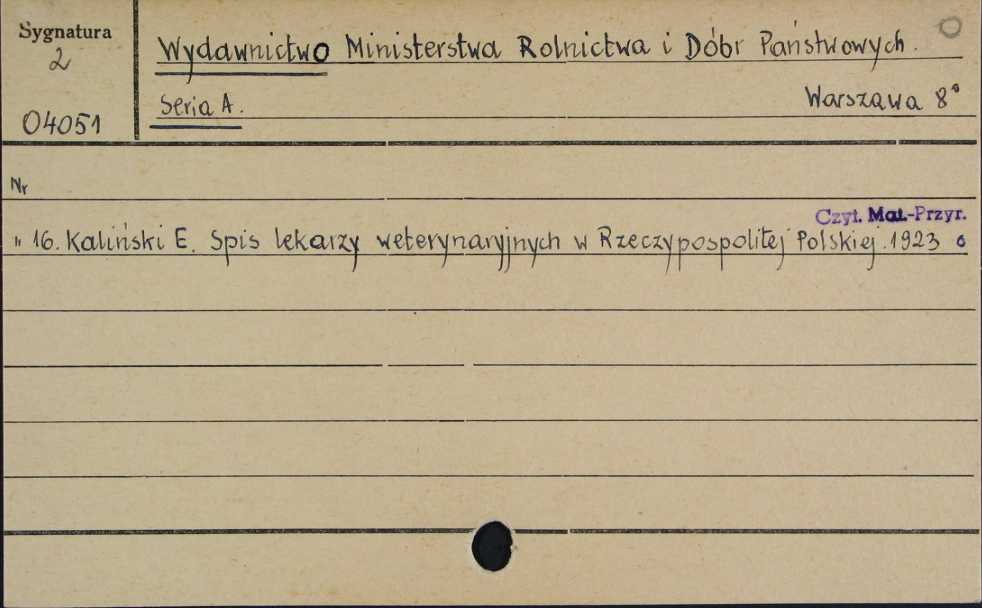 Sygnatura
2
04051
Wydawnictwo Ministerstwa Rolnictwa i Dóbr Państwowych.
Seria A.
Warszawa 8°
Nr
Czyt. Mat.-Przyr.
" 16. Kaliński E. Spis lekarzy weterynaryjnych w Rzeczypospolitej Polskiej. 1923